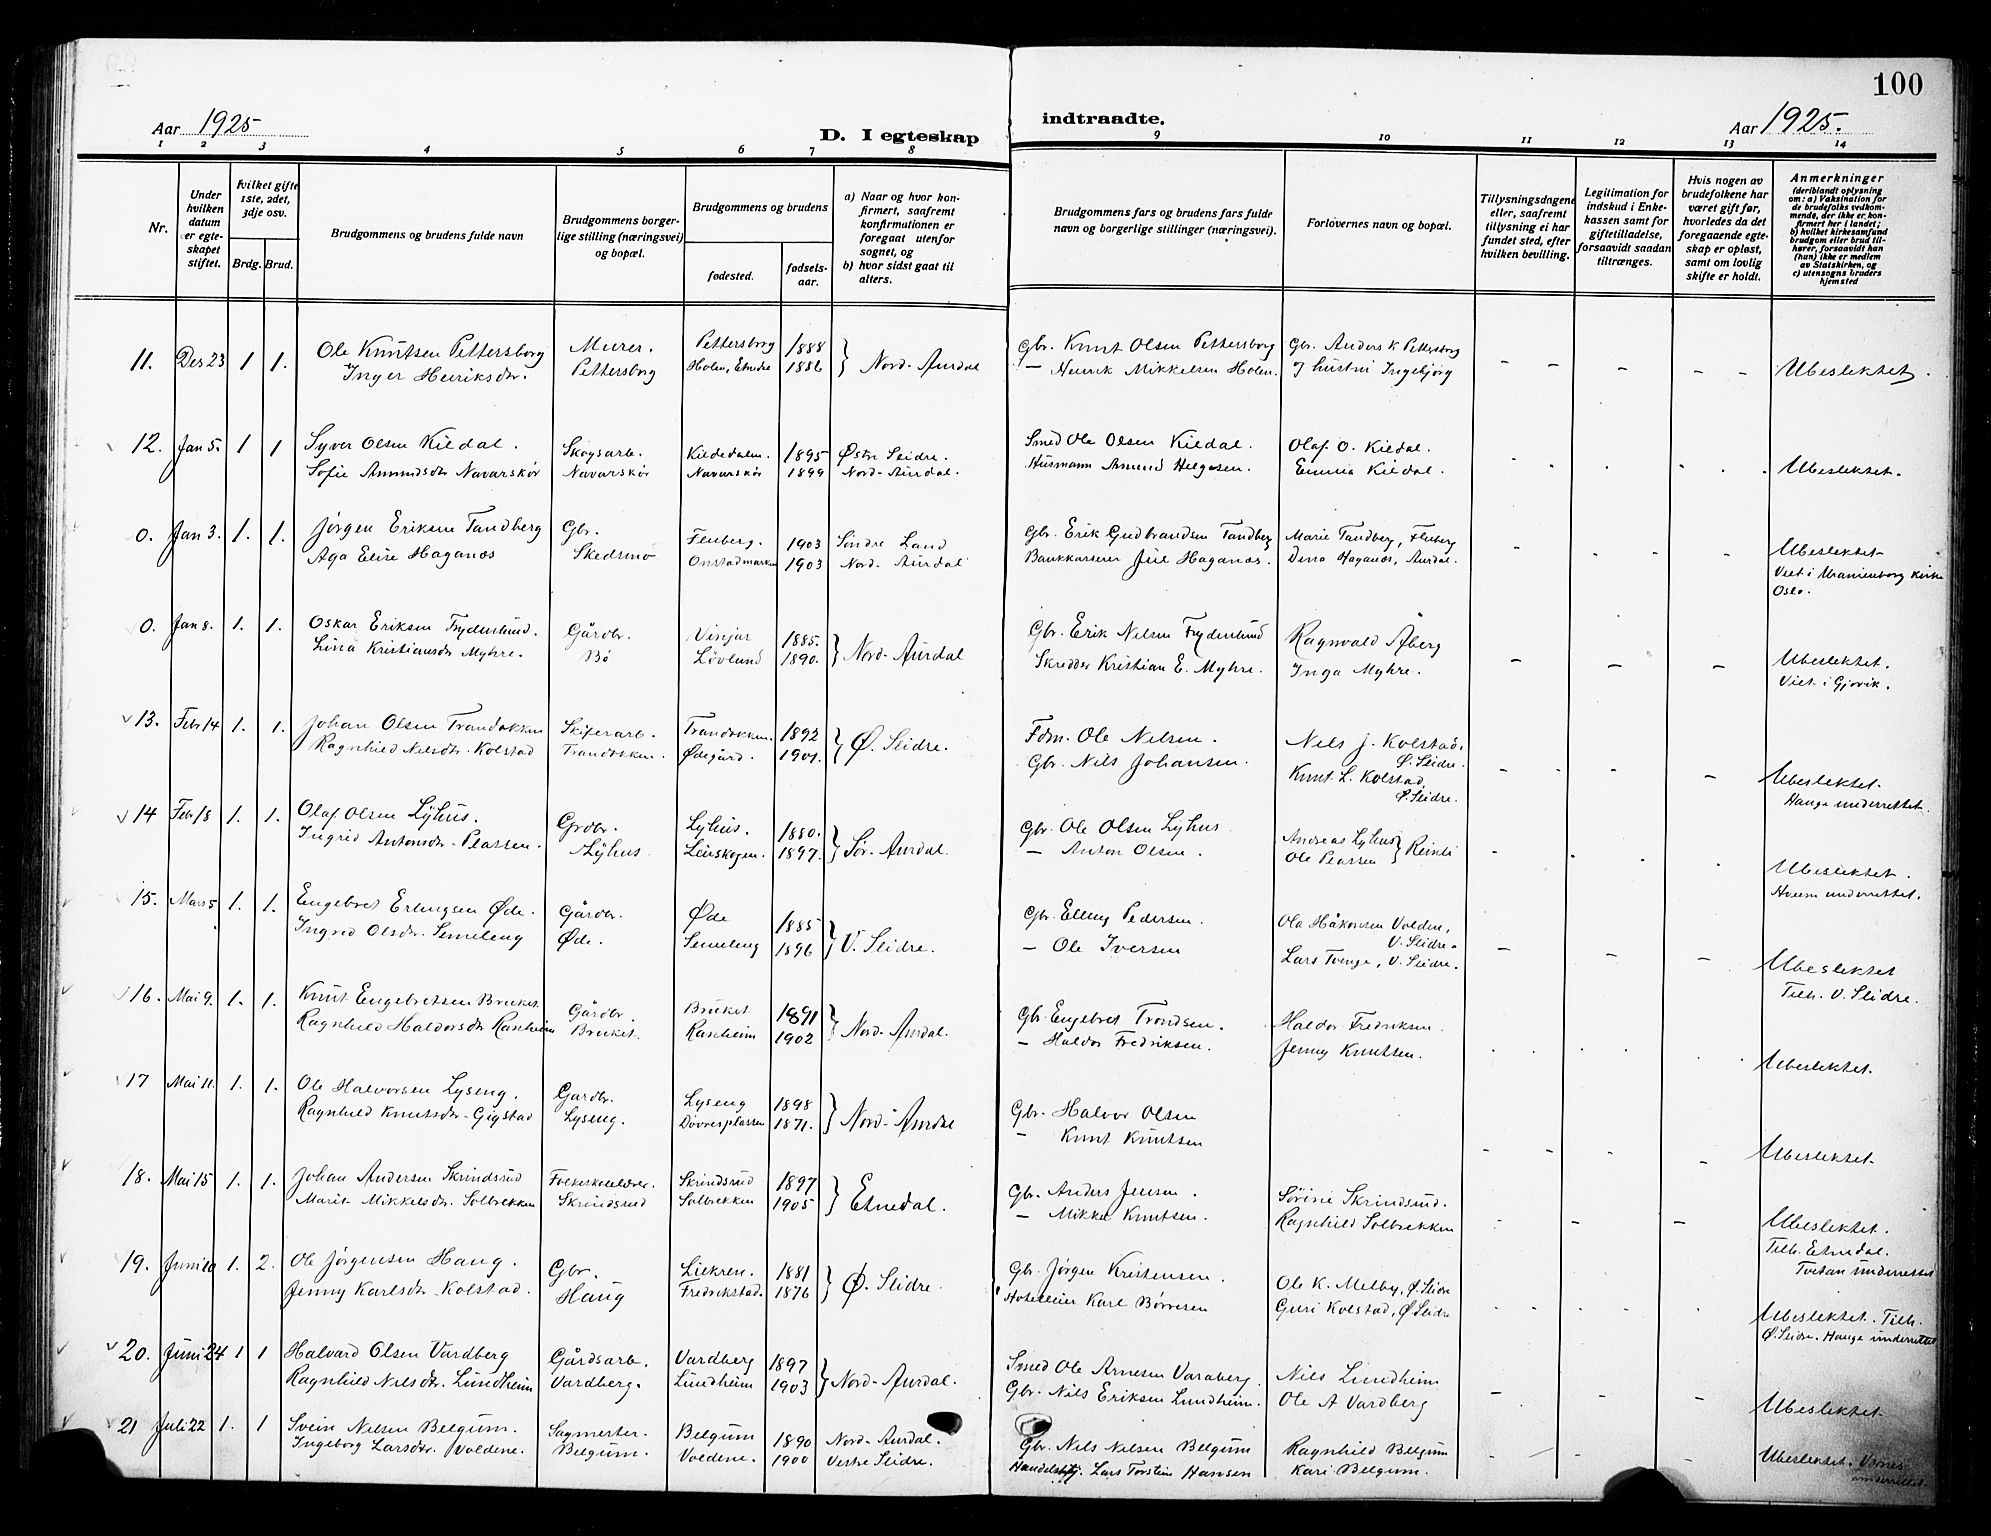 100
Aar 1925
D. I egteskap
indtraadte.
Aar 1925.
1 2 3 4 5 6 7 8 9 10 11 12 13 14
Nr.
Under hvilken datum er egteskapet stiftet.
hvilket gifte 1ste, 2det, 3dje osv.
Brdg. Brud.
Brudgommens og brudens fulde navn
Brudgommens borgerlige stilling (næringsvei) og bopæl.
Brudgommens og brudens
fødested.
fødselsaar.
a) Naar og hvor konfirmert, saafremt konfirmationen er foregaat utenfor sognet, og
b) hvor sidst gaat til alters.
Brudgommens fars og brudens fars fulde navn og borgerlige stillinger (næringsvei).
Forlovernes navn og bopæl.
Tillysningsdagene eller, saafremt tillysning ei har fundet sted, efter hvilken bevilling.
Legitimation for indskud i Enkekassen samt for giftetilladelse, forsaavidt saadan tiltrænges.
Hvis nogen av brudefolkene har været gift før, hvorledes da det foregaaende egteskap er opløst, samt om lovlig skifte er holdt.
Anmerkninger
(deriblandt oplysning om: a) Vaksination for de brudefolks vedkommende, der ikke er konfirmert her i landet; b) hvilket kirkesamfund brudgom eller brud tilhører, forsaavidt han (hun) ikke er medlem av Statskirken, og c) utensogns bruders hjemsted
11. Des 23 1 1. Ole Knutsen Pettersborg Murer. Pettersborg 1888 } Nord-Aurdal Gbr. Knut Olsen Pettersborg Gbr. Anders K Pettersborg - - - - - Ubeslektet.
Inger Henriksdr. Pettersborg Holen, Etnedr 1886 - Henrik Mikkelsen Holen. Ingebjørg
12. Jan 5. 1 1 Syver Olsen Kildal. Skogsarb. Kildedalen. 1895 Østre Slidre. Smed Ole Olsen Kildal. Olaf O. Kildal. Ubeslektet.
Sofie Amundsdr Navarskór Navarskór Navarskór 1899 Nord-Aurdal. Husmann Amund Helgesen. Emma Kildal.
0. Jan 3. 1. 1. Jörgen Eriksen Tandberg Gbr. Fluberg. 1903 Söndre Land Gbr. Erik Gudbrandsen Tandberg Marie Tandberg, Fluberg Ubeslektet
Aga Elise Haganæs Skedsmo Onstadmarken 1903 Nord-Aurdal Bankkasserer Juul Haganæs. Dina Haganæs, Aurdal. Viet i Uranienborg Kirke Oslo.
0. Jan 8. 1. 1. Oskar Eriksen Frydenlund. Gårdbr. Vinjar 1885. } Nord-Aurdal Gbr. Erik Nilsen Frydenlund Ragnvald Åberg Ubeslektet.
Lina Kristiansdr Myhre. Bö Lövlund 1890. Skredder Kristian E. Myhre. Inga Myhre. Viet i Gjøvik.
13. Febr 14 1. 1. Johan Olsen Trandokken Skiferarb. Trandokken. 1892 } Ø. Slidre. Fdm. Ole Nilsen. Nils J. Kolstad, Ø. Slidre. Ubeslektet.
Ragnhild Nilsdtr. Kolstad Trandokken. Ødegård. 1901. Gbr. Nils Johansen. Knut L. Kolstad, Ø. Slidre. Hauge underrettet.
14 Febr 18 1. 1. Olaf Olsen Lyhus. Grdbr. Lyhus. 1880. } Sør-Aurdal. Gbr. Ole Olsen Lyhus Andreas Lyhus } Reinli Ubeslektet.
Ingrid Antonsdtr. Plassen. Lyhus. Leirskogen. 1897. - Anton Olsen. Ole Plassen underrettet.
15. Mars 5 1. 1. Engebret Erlingsen Øde. Gårdbr. Øde 1885 } V. Slidre. Gbr. Elling Pedersen. Ola Håkonsen Volden, V. Slidre. Ubeslektet
Ingrid Olsdtr. Semeleng Øde. Semeleng 1896 - Ole Iversen Lars Tvenge, V. Slidre. Tilh. V. Slidre.
16. Mai 9. 1. 1. Knut Engebretsen Bruket. Gårdbr. Bruket 1891 } Nord-Aurdal. Gbr. Engebret Trondsen. Haldor Fredriksen. Ubeslektet.
Ragnhild Haldorsdr Ranheim Bruket. Ranheim 1902 - Haldor Fredriksen. Jenny Knutsen.
17 Mai 11. 1. 1. Ole Halvorsen Lyseng. Gardbr. Lyseng 1898 } Nord-Aurdal Gbr. Halvor Olsen Ubeslektet.
Ragnhild Knutsdtr. Gigstad Lyseng. Dövresplassen 1871. - Knut Knutsen
18. Mai 15 1. 1. Johan Andersen Skrindsrud Skrindsrud 1897 } Etnedal. Gbr. Anders Jensen. Sørine Skrindsrud. Ubeslektet.
Marit Mikkelsdr. Solbrekken Skrindsrud Solbrekken 1905 - Mikkel Knutsen. Ragnhild Solbrekken Tilh. Etnedal. underrettet
19. Juni 10 1. 2. Ole Jörgensen Haug. Gbr. Liekren. 1881 } Ø. Slidre. Gbr. Jörgen Kristensen. Ole K. Melby, Ø. Slidre Ubeslektet. Tilh.
Jenny Karlsdtr. Kolstad. Haug Fredrikstad. 1876 Hoteleier Karl Børresen Guri Kolstad, Ø. Slidre Ø. Slidre. Hauge underrettet
20. Juni 24 1 1 Halvard Olsen Vardberg Gårdsarb. Vardberg 1897 } Nord-Aurdal. Smed Ole Arnesen Vardberg. Nils Lundheim Ubeslektet.
Ragnhild Nilsdtr. Lundheim Vardberg. Lundheim 1903 Gbr. Nils Eriksen Lundheim. Ole A Vardberg
21 Juli 22 1. 1 Svein Nilsen Belgum. Sagmester. Belgum 1890 Nord-Aurdal. Gbr. Nils Nilsen Belgum Ragnhild Belgum Ubeslektet.
Ingeborg Larsdtr. Voldene. Belgum. Voldene. 1900 Vestre Slidre. Lars Torstein Hansen Kari Belgum. underrettet.